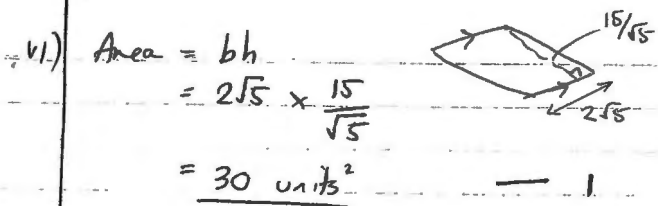 vi) Area = bh
= 2√5 × 15/√5
= 30 units²
15/√5
2√5
— 1